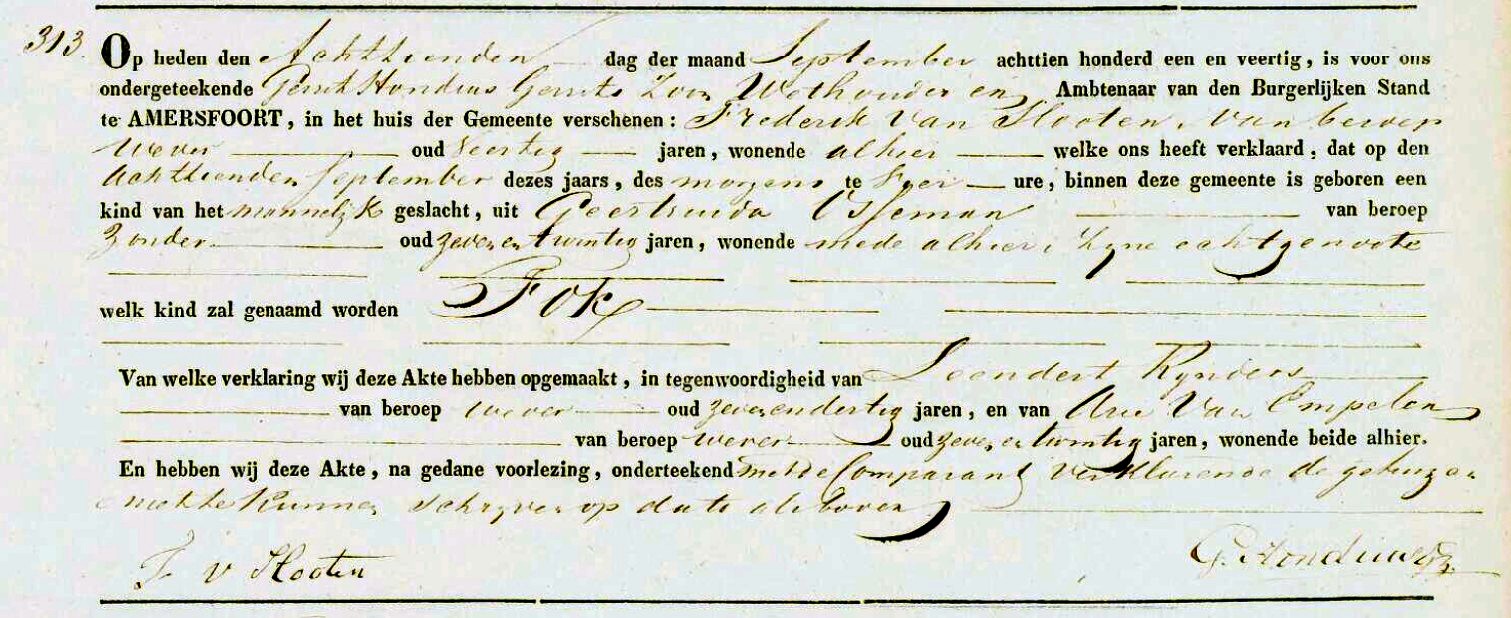 313.
Op heden den Achttienden dag der maand September achttien honderd een en veertig, is voor ons
ondergeteekende Gerrit Hondius Gerrits Zoon Wethouder en Ambtenaar van den Burgerlijken Stand
te AMERSFOORT, in het huis der Gemeente verschenen: Frederik Van Slooten, van beroep
Wever oud Veertig jaren, wonende alhier welke ons heeft verklaard, dat op den
Achttienden September dezes jaars, des morgens te vier ure, binnen deze gemeente is geboren een
kind van het mannelijk geslacht, uit Geertruida van beroep
Zonder oud zeven en twintig jaren, wonende mede alhier, Zyne echtgenoote
welk kind zal genaamd worden Fok
Van welke verklaring wij deze Akte hebben opgemaakt, in tegenwoordigheid van Leendert Rynders
van beroep wever oud zeven en dertig jaren, en van Arie Van Empelen
van beroep wever oud zeven en twintig jaren, wonende beide alhier.
En hebben wij deze Akte, na gedane voorlezing, onderteekend met de Comparant verklarende de getuigen
niet te kunnen schryven op dato als boven
F v Slooten
G. Hondius Gz.